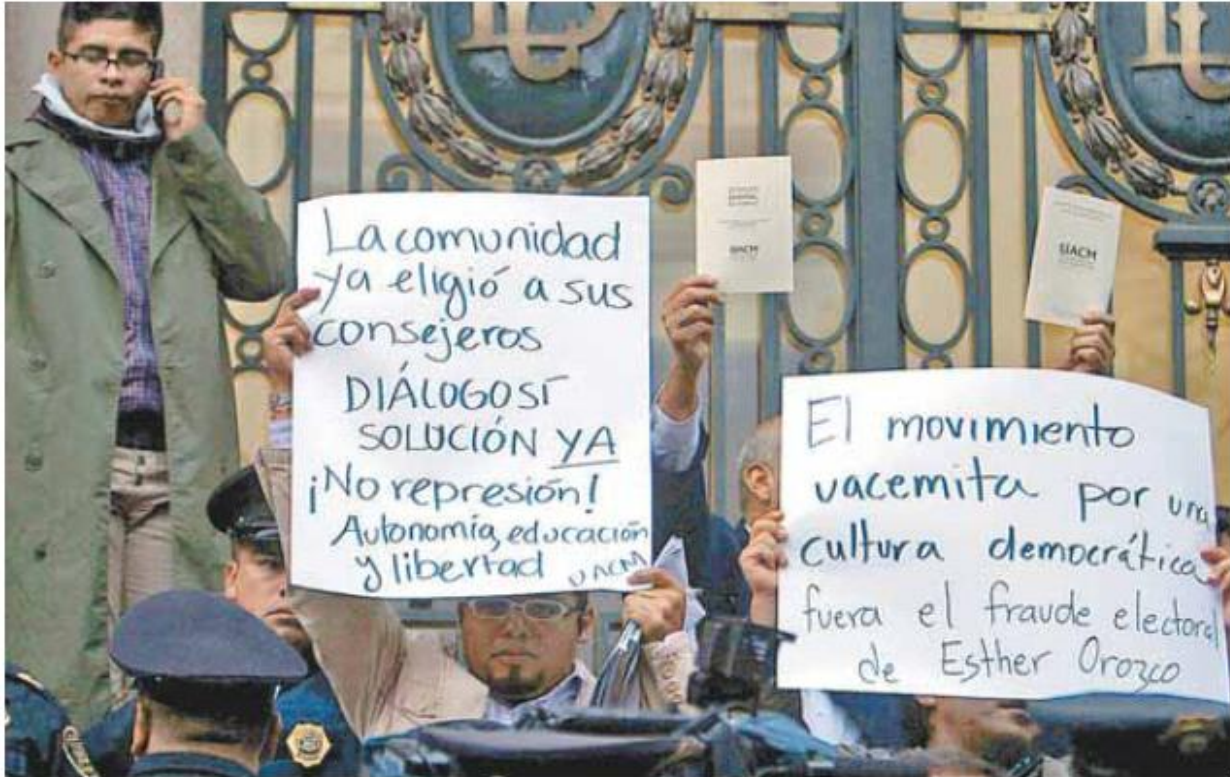 La comunidad
ya eligió a sus
consejeros
DIÁLOGO SÍ
SOLUCIÓN YA
¡No represión!
Autonomía, educación
y libertad UACM
UACM
UACM
El movimiento
uacemita por una
cultura democrática
fuera el fraude electoral
de Esther Orozco